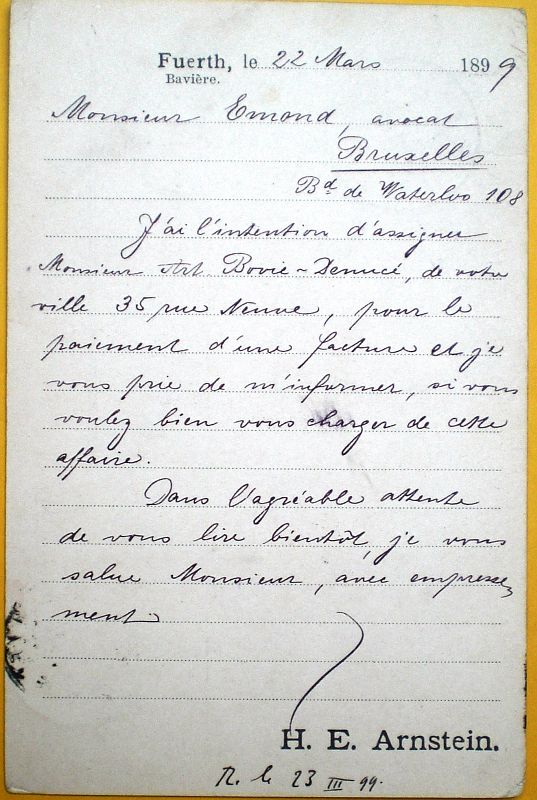 Fuerth, le 22 Mars 1899
Bavière.
Monsieur Emond, avocat
Bruxelles
Bd de Waterloo 108
J'ai l'intention d'assigner
Monsieur Art. Bovie-Denucé, de votre
ville 35 rue Neuve, pour le
paiement d'une facture et je
vous prie de m'informer, si vous
voulez bien vous charger de cette
affaire.
Dans l'agréable attente
de vous lire bientôt, je vous
salue Monsieur, avec empresse-
ment
H. E. Arnstein.
R. le 23 III 99.